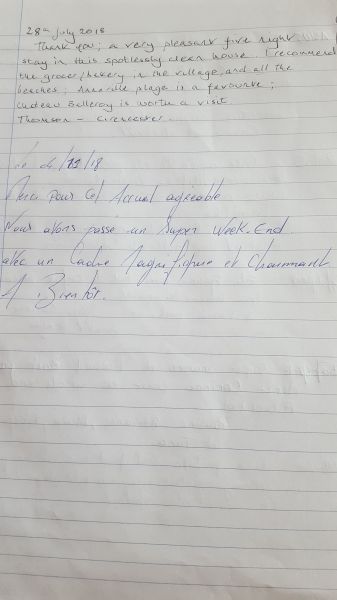 28th July 2018
Thank you; a very pleasant five night
stay in this spotlessly clean house. I recommend
the grocer/bakery in the village, and all the
beaches; Anneville plage is a favourite;
Chateau Balleroy is worth a visit.
Thomson - Cirencester.
Le 4/11/18
Merci pour cet Accueil agréable
Nous avons passé un Super Week-End
avec un Cadre Magnifique et Charmant
A Bientôt.